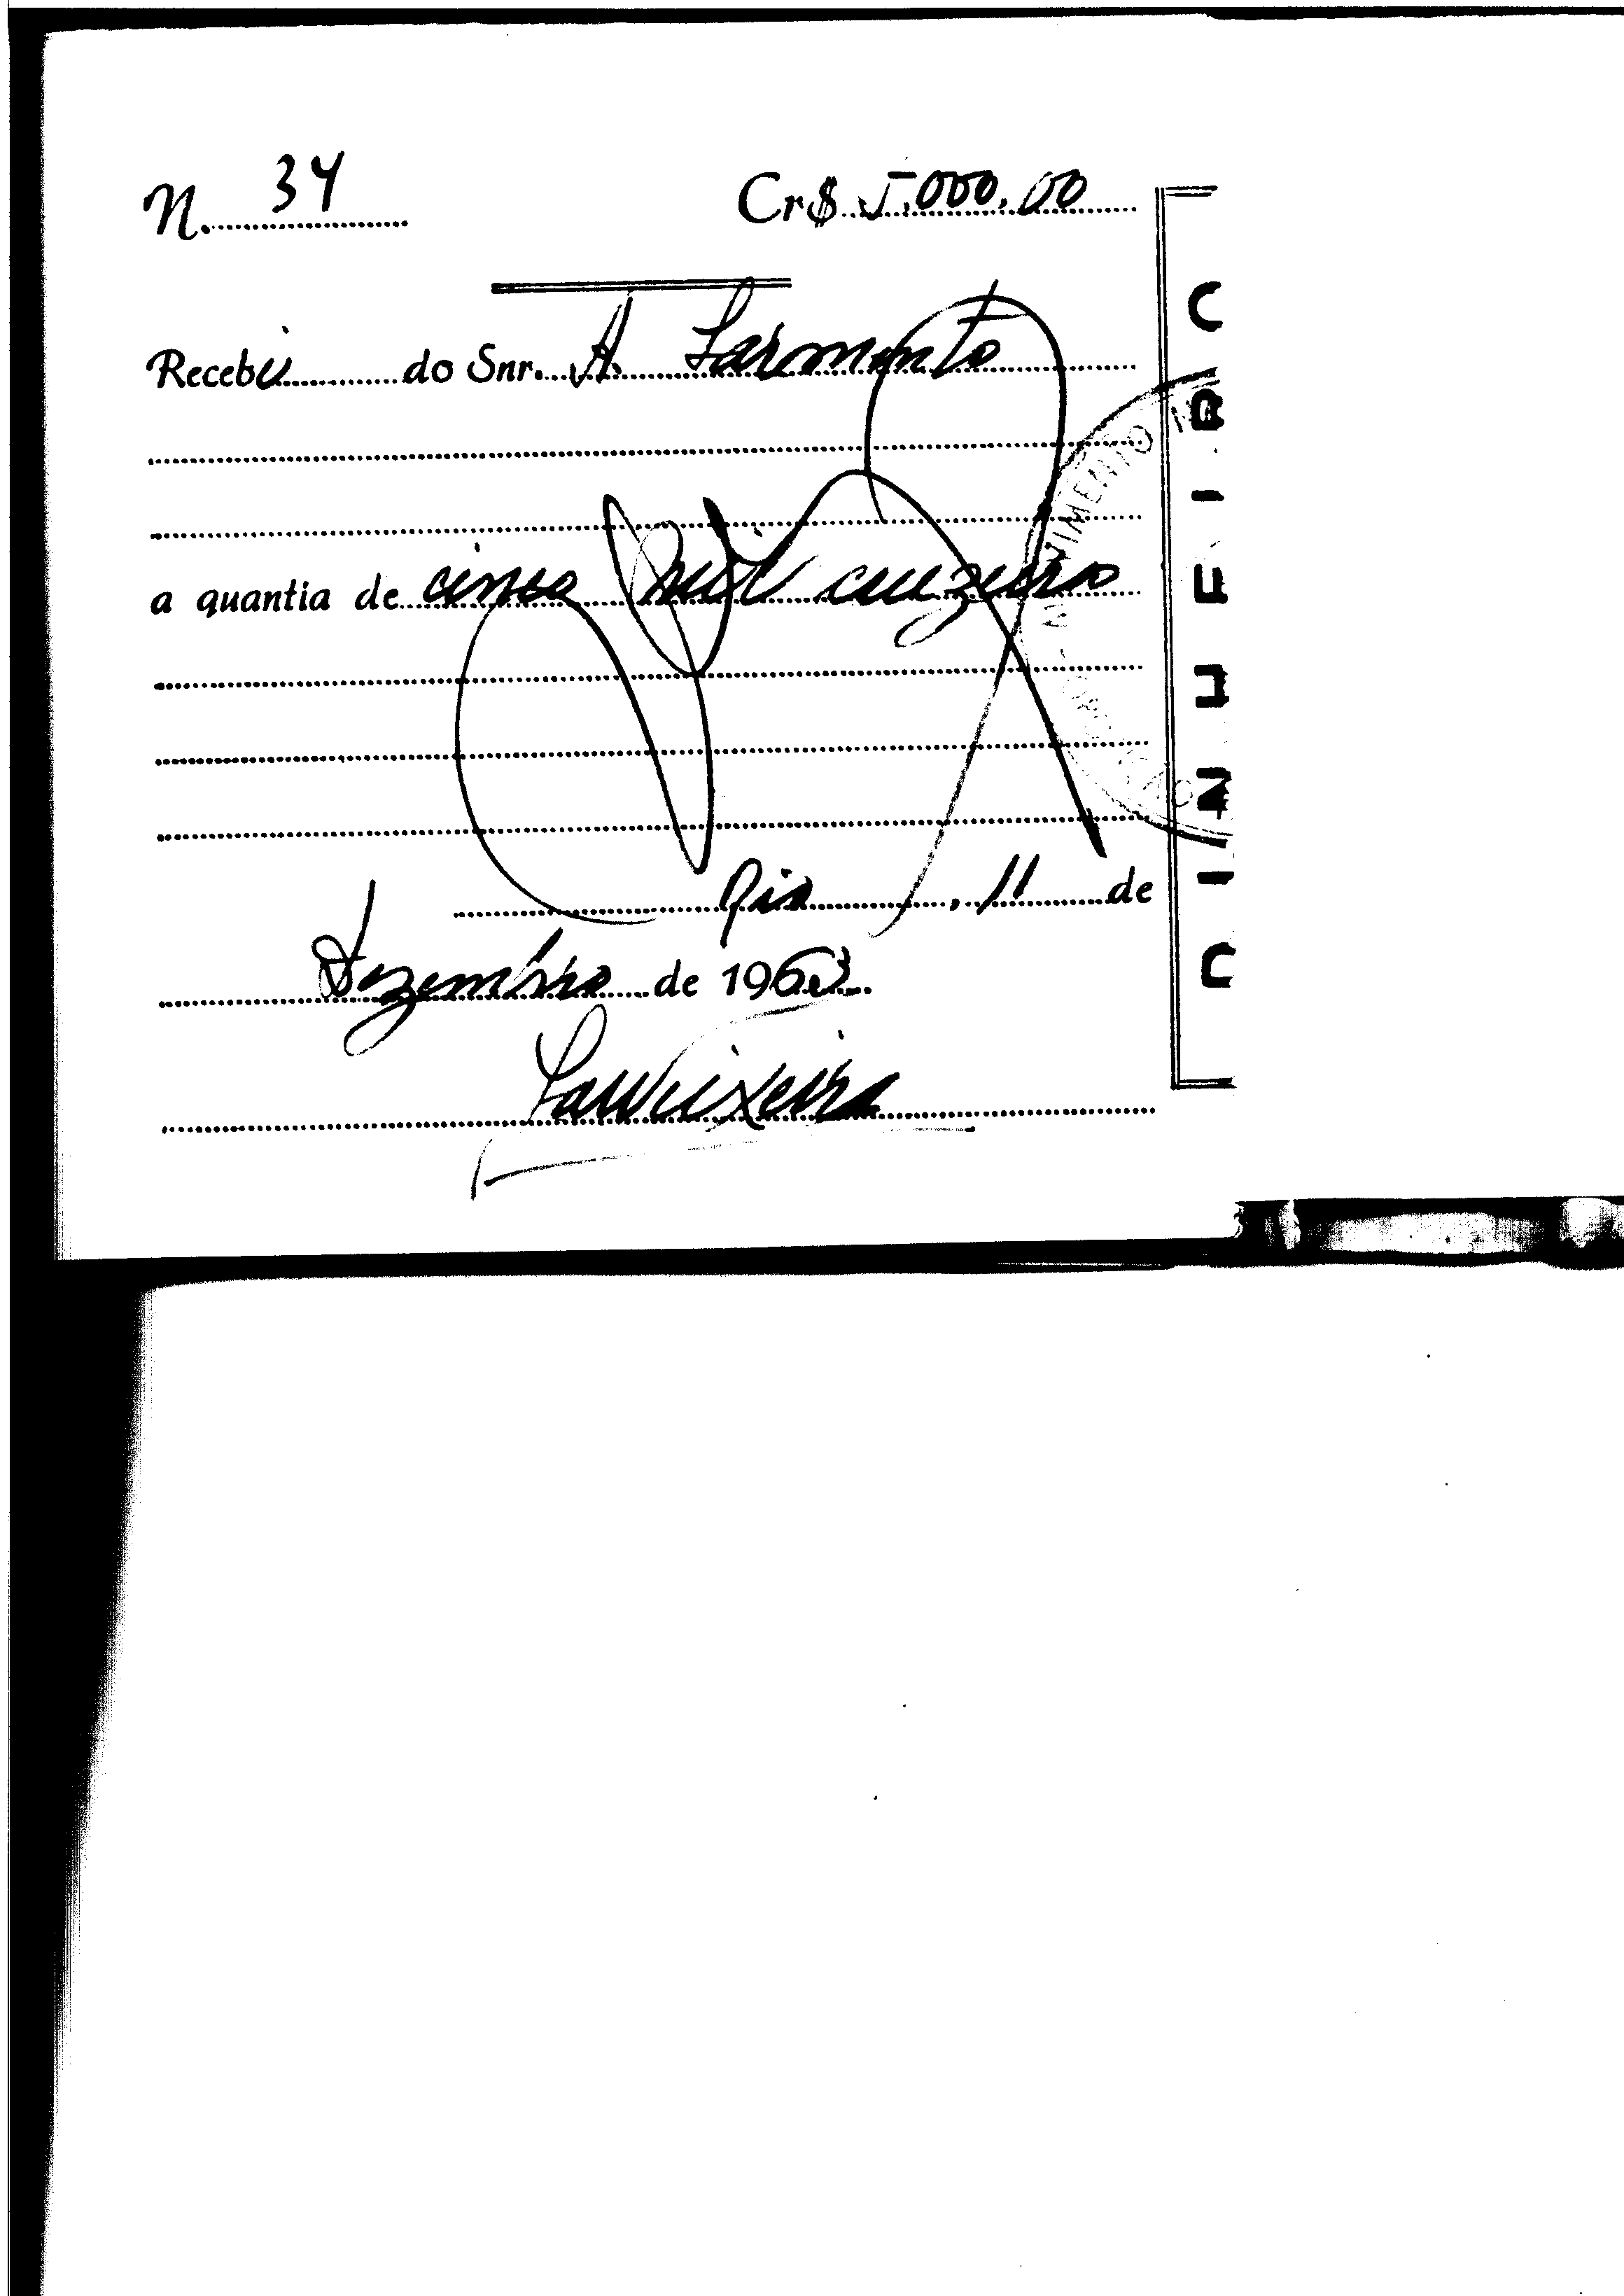 N. 34 Cr$ 5.000,00
Recebi do Snr. A. Sarmento
a quantia de cinco mil cruzeiros
Rio, 11 de
Dezembro de 1963